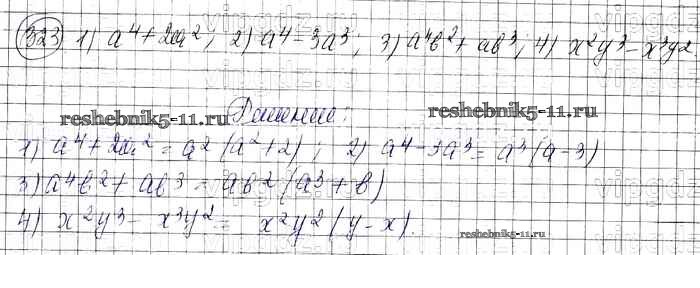 323 1) a⁴+2a²; 2) a⁴-3a³; 3) a⁴b²+ab³; 4) x²y³-x³y².
reshebnik5-11.ru
Решение:
reshebnik5-11.ru
1) a⁴+2a²=a²(a²+2); 2) a⁴-3a³=a³(a-3)
3) a⁴b²+ab³=ab²(a³+b)
4) x²y³-x³y²= x²y²(y-x).
reshebnik5-11.ru